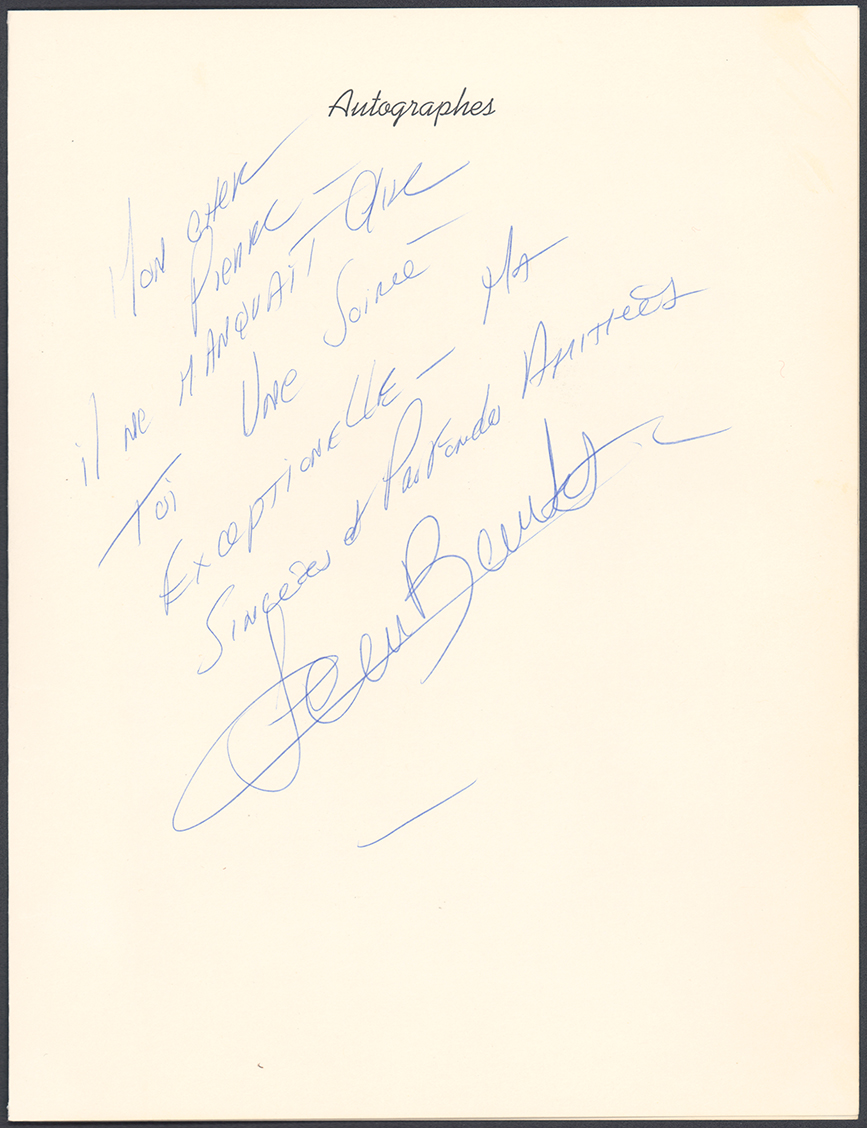 Autographes
Mon cher
Pierre —
il ne manquait que
toi Une Soirée
Exceptionelle — Ma
Sincères et Profondes Amitiées
Jean